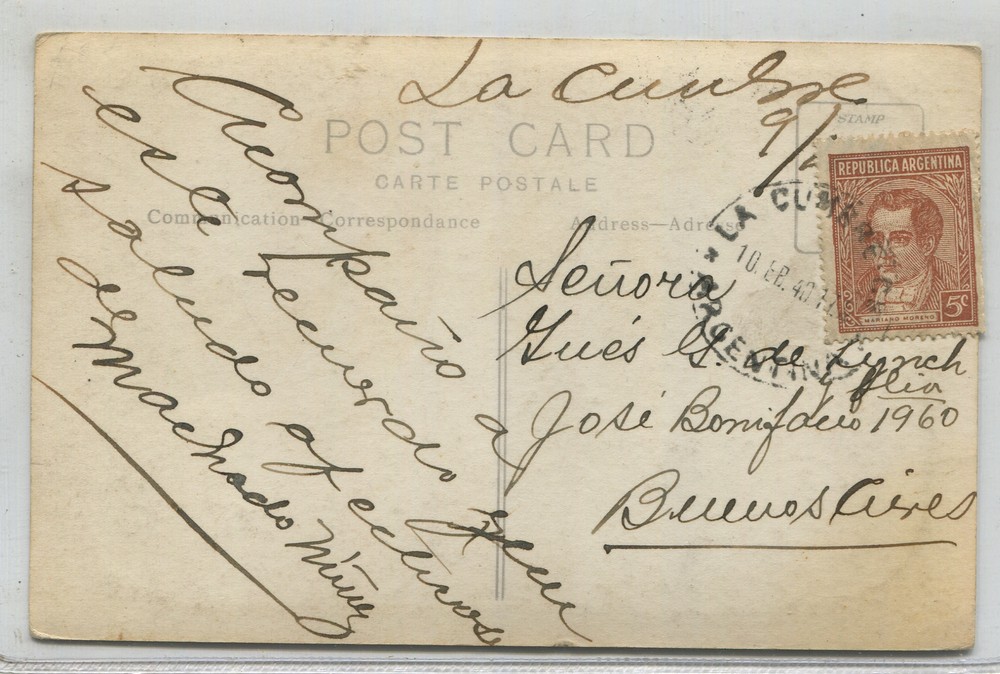 La Cumbre
9/
STAMP
POST CARD
CARTE POSTALE
Communication—Correspondance
Address—Adresse
REPUBLICA ARGENTINA
MARIANO MORENO
5c
LA CUMBRE
10.40
ARGENTINA
Acompaño a
esa recuerdo
saludo afectuoso
de Machado Núñez
Señora
Inés G. de Lynch
y flia
José Bonifacio 1960
Buenos Aires